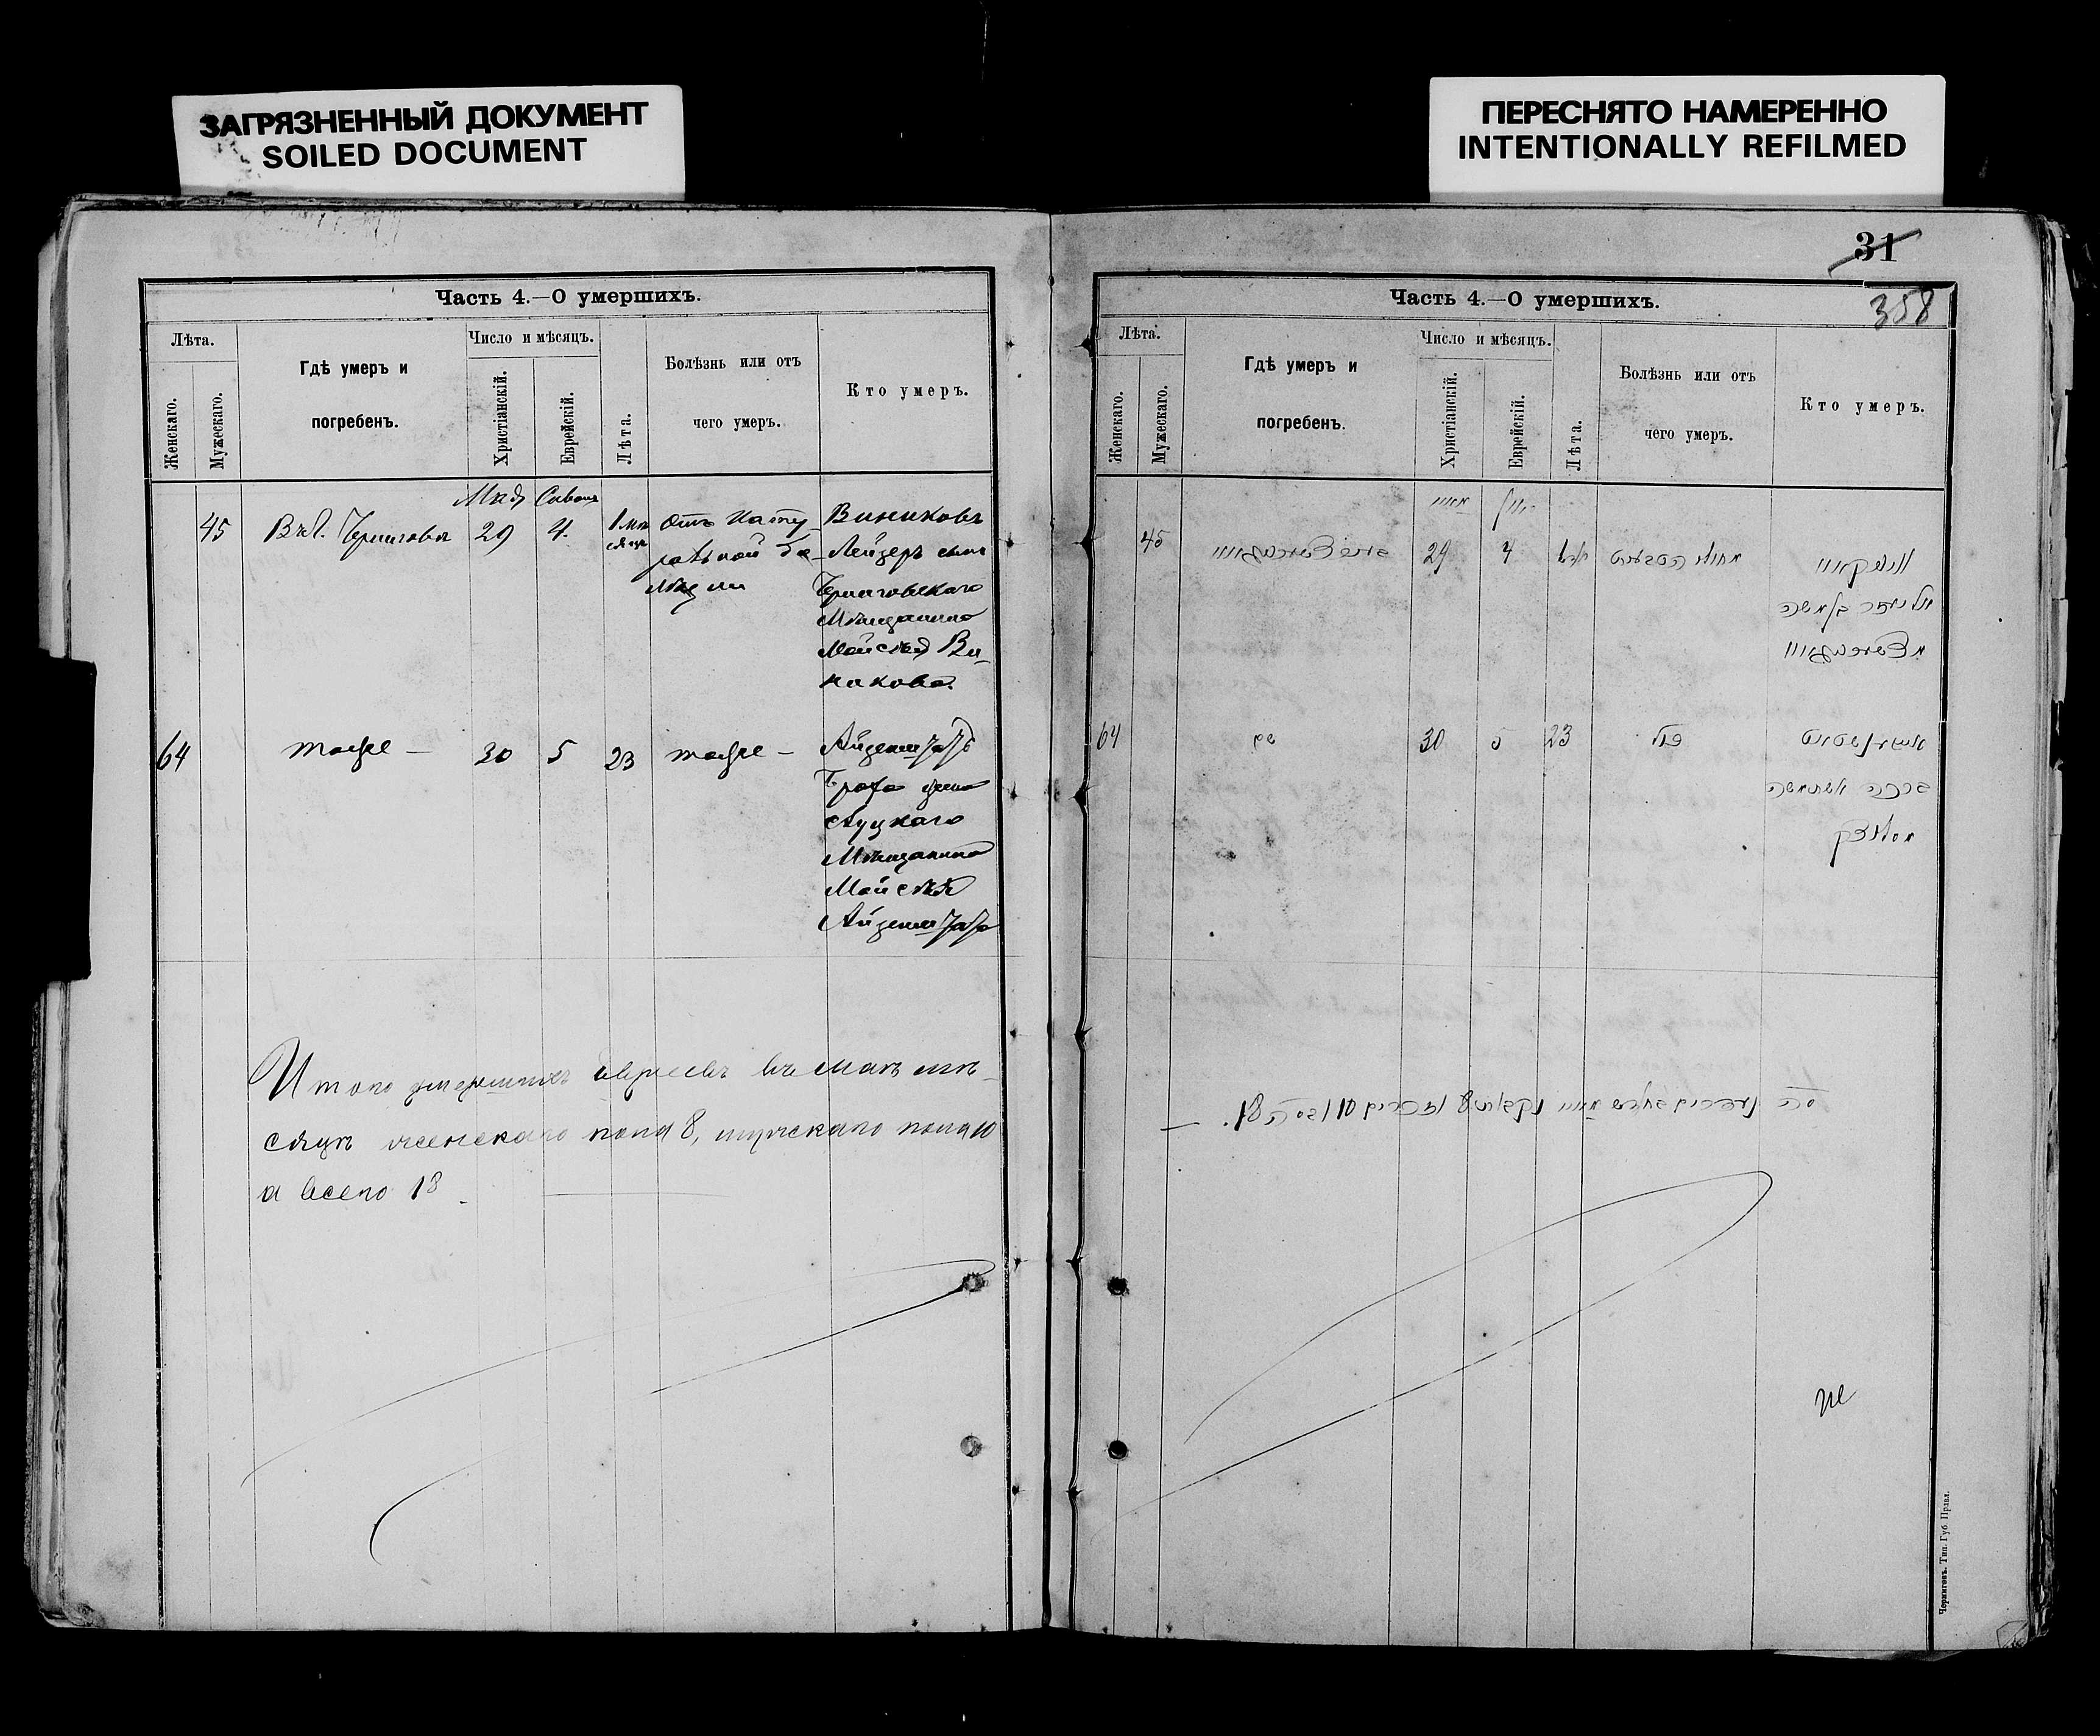 ЗАГРЯЗНЕННЫЙ ДОКУМЕНТ
SOILED DOCUMENT
ПЕРЕСНЯТО НАМЕРЕННО
INTENTIONALLY REFILMED
Часть 4.—О умершихъ.
Лѣта.
Женскаго.
Мужескаго.
Гдѣ умеръ и
погребенъ.
Число и мѣсяцъ.
Христіанскій.
Еврейскій.
Лѣта.
Болѣзнь или отъ
чего умеръ.
Кто умеръ.
Мая Сивана
45 Въ г. Черниговѣ 29 4 1 мѣ
сяцъ
Отъ Нату
ральной бо
лѣзни
Виниковъ
Лейзеръ сынъ
Черниговскаго
Мѣщанина
Мойсея Ви-
никова.
64 тоже — 30 5 23 тоже —
Айзенштатъ
Броха жена
Луцкаго
Мѣщанина
Мойсея
Айзенштата
Итого умершихъ евреевъ въ маѣ мѣ-
сяцѣ женскаго пола 8, мужскаго пола 10
а всего 18
31
358
Часть 4.—О умершихъ.
Лѣта.
Женскаго.
Мужескаго.
Гдѣ умеръ и
погребенъ.
Число и мѣсяцъ.
Христіанскій.
Еврейскій.
Лѣта.
Болѣзнь или отъ
чего умеръ.
Кто умеръ.
מאיי סיון
45 29 4
וויניקאוו
אליעזר בן משה
64 שם 30 5 23
ברכה אשת משה
מלוצק
סה
10
18.
Черниговъ. Тип. Губ. Правл.